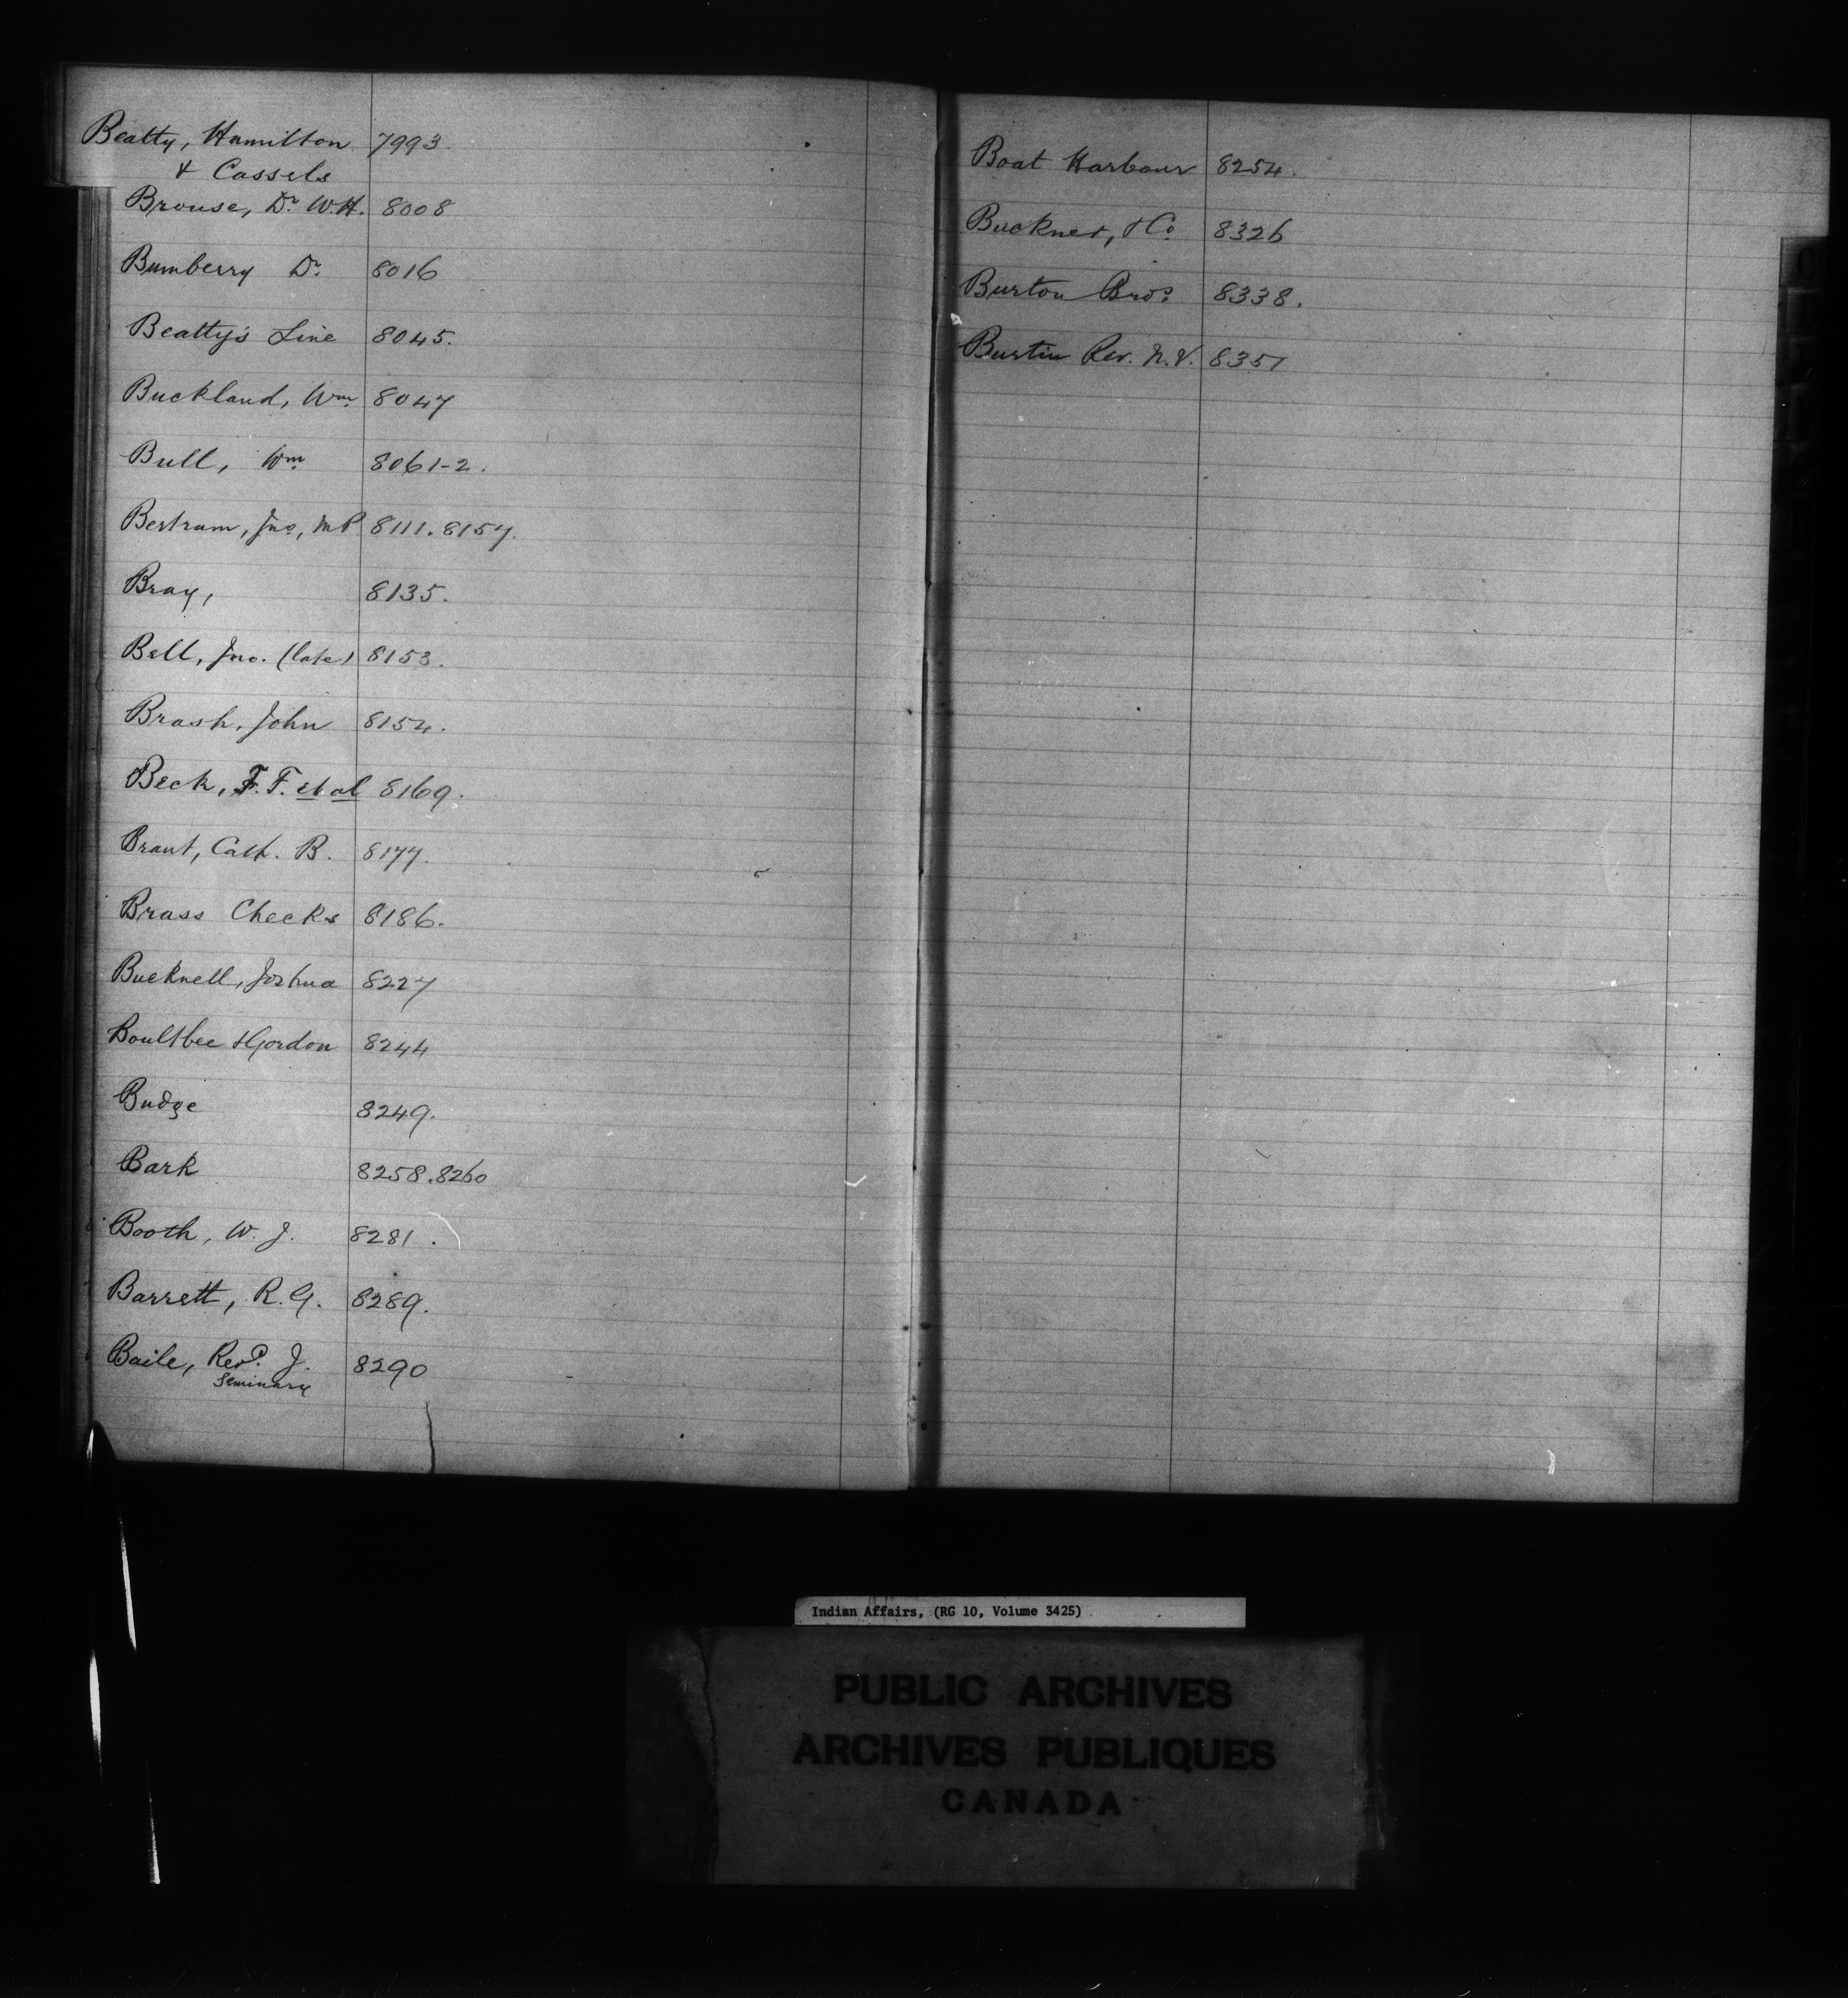 Beatty, Hamilton 7993.
& Cassels
Brouse, Dr. W.H. 8008
Bumberry Dr. 8016
Beatty's Line 8045.
Buckland, Wm. 8047
Bull, Wm. 8061-2.
Bertram, Jno., MP 8111. 8157.
Bray, 8135.
Bell, Jno. (late) 8153.
Brash, John 8154.
Beck, F. F. et al 8169.
Brant, Cath. B. 8177.
Brass Checks 8186.
Bucknell, Joshua 8227
Boultbee & Gordon 8244
Budge 8249.
Bark 8258. 8260
Booth, W. J. 8281.
Barrett, R. G. 8289.
Baile, Revd. J. 8290
Seminary
Boat Harbour 8254.
Buckner, & Co. 8326
Burton Bros. 8338.
Burtin Rev. N. V. 8351
Indian Affairs, (RG 10, Volume 3425)
PUBLIC ARCHIVES
ARCHIVES PUBLIQUES
CANADA